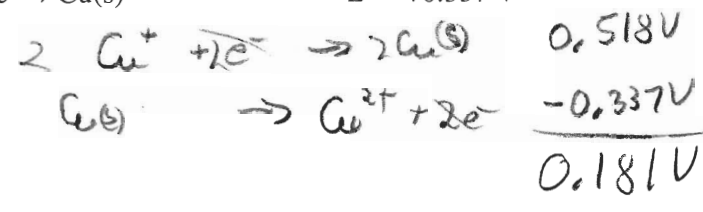 → Cu(s)
2 Cu⁺ +2e⁻ → 2Cu(s) 0.518V
Cu(s) → Cu²⁺ + 2e⁻ -0.337V
0.181V